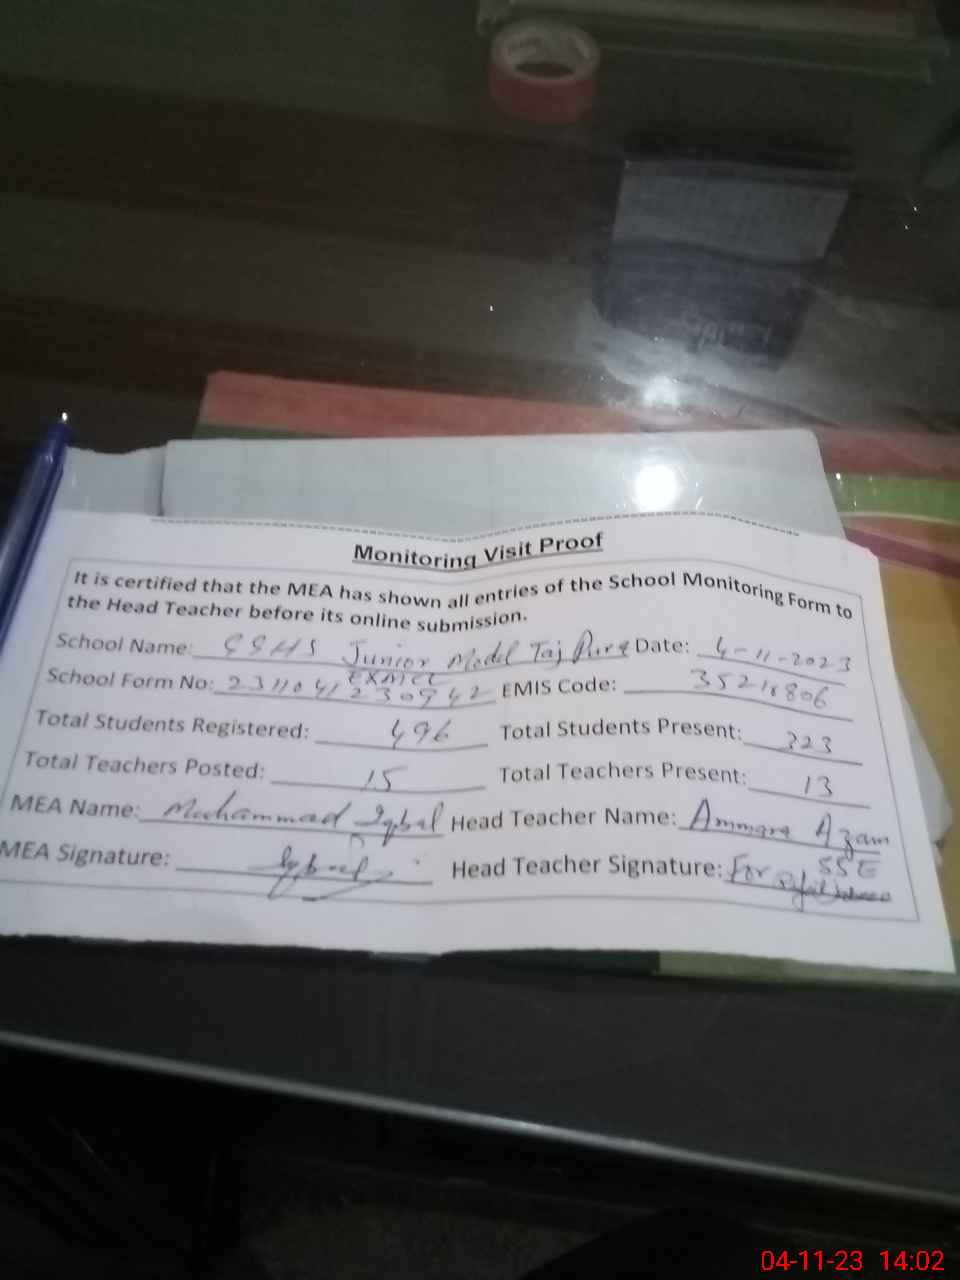 Monitoring Visit Proof
It is certified that the MEA has shown all entries of the School Monitoring Form to
the Head Teacher before its online submission.
School Name: GGHS Junior Model Taj Pura Date: 4-11-2023
EXMCL
School Form No: 2311041230942 EMIS Code: 35210806
Total Students Registered: 496 Total Students Present: 323
Total Teachers Posted: 15 Total Teachers Present: 13
MEA Name: Muhammad Iqbal Head Teacher Name: Ammara Azam
MEA Signature: Iqbal Head Teacher Signature: For SSE
04-11-23 14:02